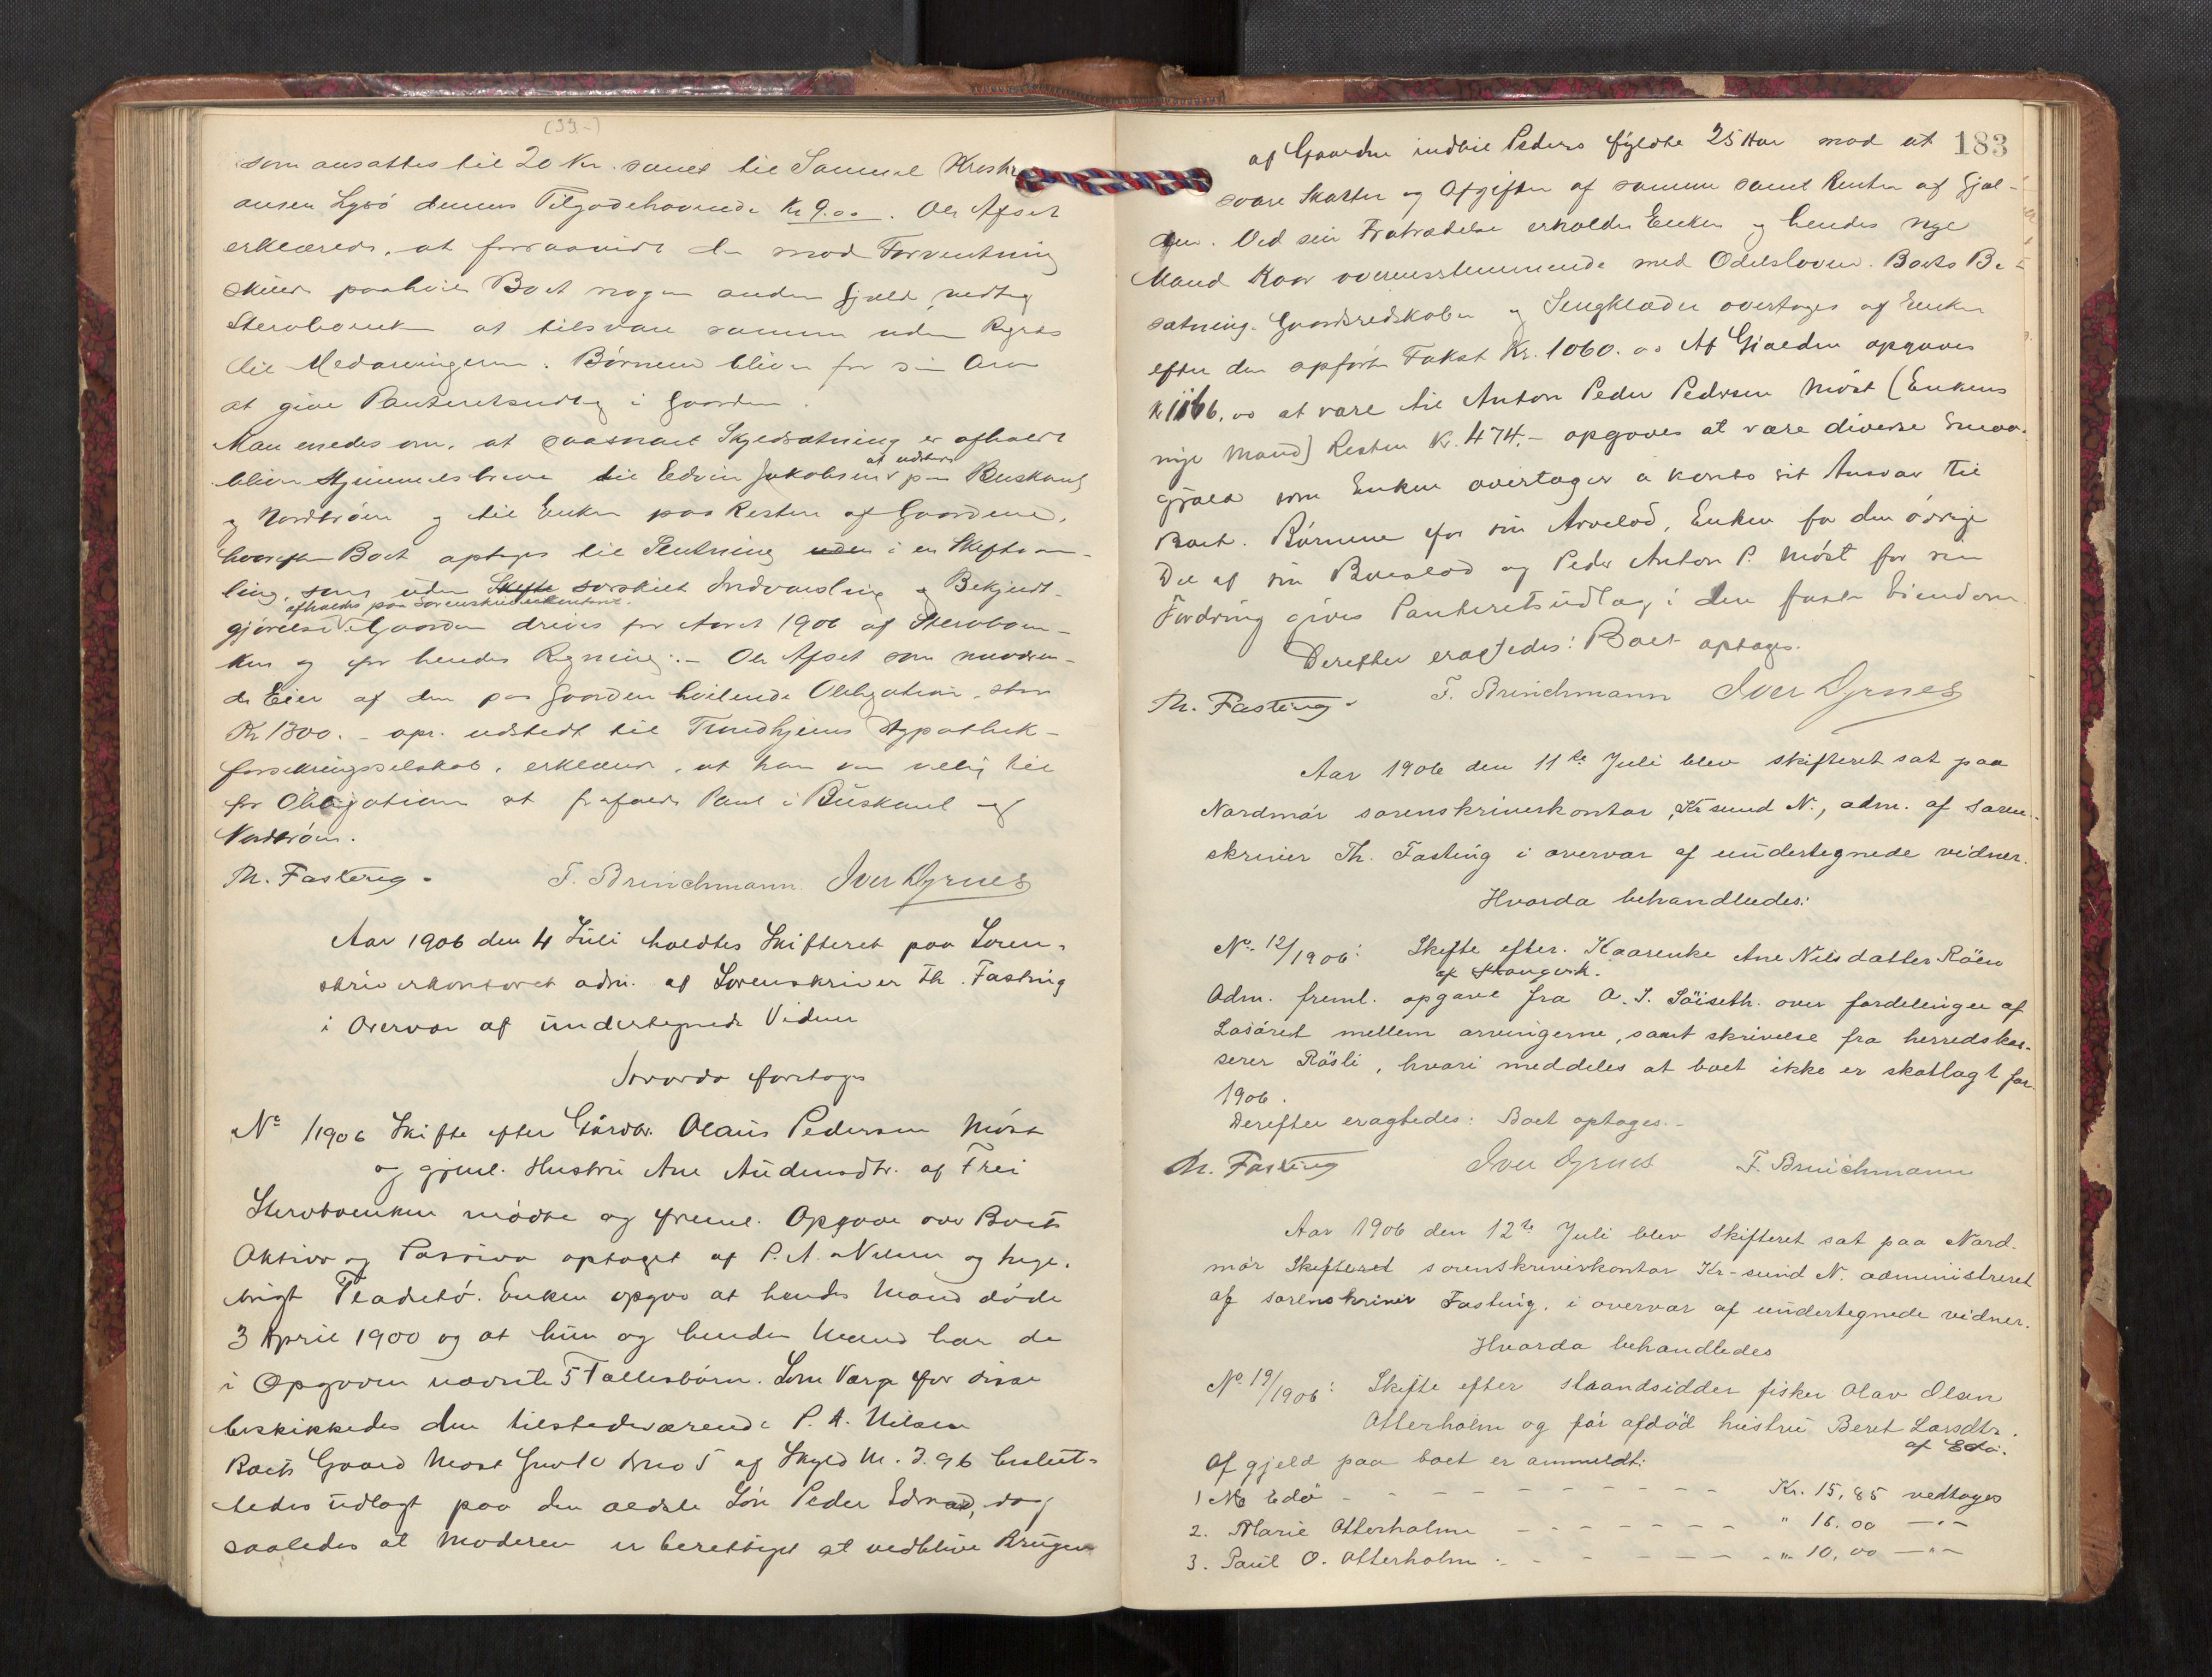 (39.-)
som ansattes til 20 Kr. samt til Samuel Kristi
ansen Lysö dennes Tilgodehavende Kr 9.00. Ole Afset
erklærede, at forsaavidt der mod Forventning
skulde paahvile Boet nogen anden Gjæld, vedtog
Stervboenken at tilsvare samme uden Regres
til Medarvingerne. Börnene bliver for sin Arv
at give Panteretsudlæg i Gaarden.
Man enedes om, at saasnart Skyldsætning er afholdt
bliver Hjemmelsbreve til Edvin Jakobsen at udstede paa Buskaug
og Nordtröen og til Enken paa Resten af Gaardene,
hvorefter Boet optages til Slutning uden i en Skiftesam-
ling, som uden Skifte særskilt Indvarsling og Bekjendt-
gjörelse afholdes paa Sorenskriverkontoret. Gaarden drives for Aaret 1906 af Stervboen-
ken og for hendes Regning. - Ole Afset som nuværen-
de Eier af den paa Gaarden hvilende Obligation, stor
Kr 1300. - opr. udstedt til Trondhjems Hypothek-
forsikringsselskab, erklærer, at han er villig til
for Obligationen at frafalde Pant i Buskaul og
Nordtröen.
Th. Fasting. F. Brinchmann Iver Ögrnes
Aar 1906 den 4 Juli holdtes Skifteret paa Soren-
skriverkontoret adm. af Sorenskriver Th. Fasting
i Overvær af undertegnede Vidner
Hvorda foretoges
No /1906 Skifte efter Gårdbr. Olaus Pedersen Möst
og gjenl. Hustru Ane Andersdtr. af Frei
Stervboenken mödte og freml. Opgave over Boets
Aktiva og Passiva optaget af P. A. Nilsen og
Enken opgav at hendes Mand döde
3 April 1900 og at hun og hendes Mand har de
i Opgaven nævnte 5 Fællesbörn. Som Værge for disse
beskikkedes den tilstedeværende P. A. Nilsen
Boets Gaard Möst Gno 10 Brno 5 af Skyld M. 3.96 beslut-
tedes udlagt paa den ældste Sön Peder Edvard, dog
saaledes at Moderen er berettiget at vedblive Brugen
183
af Gaarden indtil Peders fyldte 25 Aar mod at
svare Skatter og Afgifter af samme samt Renter af Gjæl-
den. Ved sin Fratrædelse erholder Enken og hendes nye
Mand Kaar overensstemmende med Odelsloven. Boets Be-
sætning, Gaardsredskaber og Sengklæder overtages af Enken
efter den opförte Takst Kr. 1060.00 Af Gjælden opgaves
Kr 1166.00 at være til Anton Peder Pedersen Möst (Enkens
nye Mand) Resten Kr. 474.- opgaves at være diverse Smaa-
gjæld som Enken overtager a konto sit Ansvar til
Boet. Börnene for sin Arvelod, Enken for den övrige
Del af sin Boeslod og Peder Anton P. Möst for sin
Fordring gives Panteretsudlæg i den faste Eiendom
Derefter eragtedes: Boet optages.
Th. Fasting. F. Brinchmann Iver Ögrnes
Aar 1906 den 11te Juli blev skifteret sat paa
Nordmör sorenskriverkontor, Kr sund N., adm. af soren-
skriver Th. Fasting i overvær af undertegnede vidner.
Hvorda behandledes:
No. 12/1906: Skifte efter. Kaarenke Ane Nilsdatter Röen
af Stangvik.
Adm. freml. opgave fra O. J. Söiseth. over fordelingen af
Lösöret mellem arvingerne, samt skrivelse fra herredskas-
serer Rösli, hvori meddeles at boet ikke er skatlagt for
1906.
Derefter eragtedes: Boet optages.-
Th. Fasting Iver Ögrnes F. Brinchmann
Aar 1906 den 12te Juli blev Skifteret sat paa Nord-
mör Skifteret sorenskriverkontor Kr-sund N. administreret
af sorenskriver Fasting. i overvær af undertegnede vidner.
Hvorda behandledes
No. 19/1906: Skifte efter strandsidder fisker Olav Olsen
Otterholm og för afdöd hustru Beret Larsdtr.
af Edö.
Af gjeld paa boet er anmeldt:
1 Edö - - - - - - - - - Kr. 15,85 vedtoges
2. Marie Otterholm - - - - - - - " 16.00 —"—
3. Paul O. Otterholm - - - - - - - " 10,00 —"—